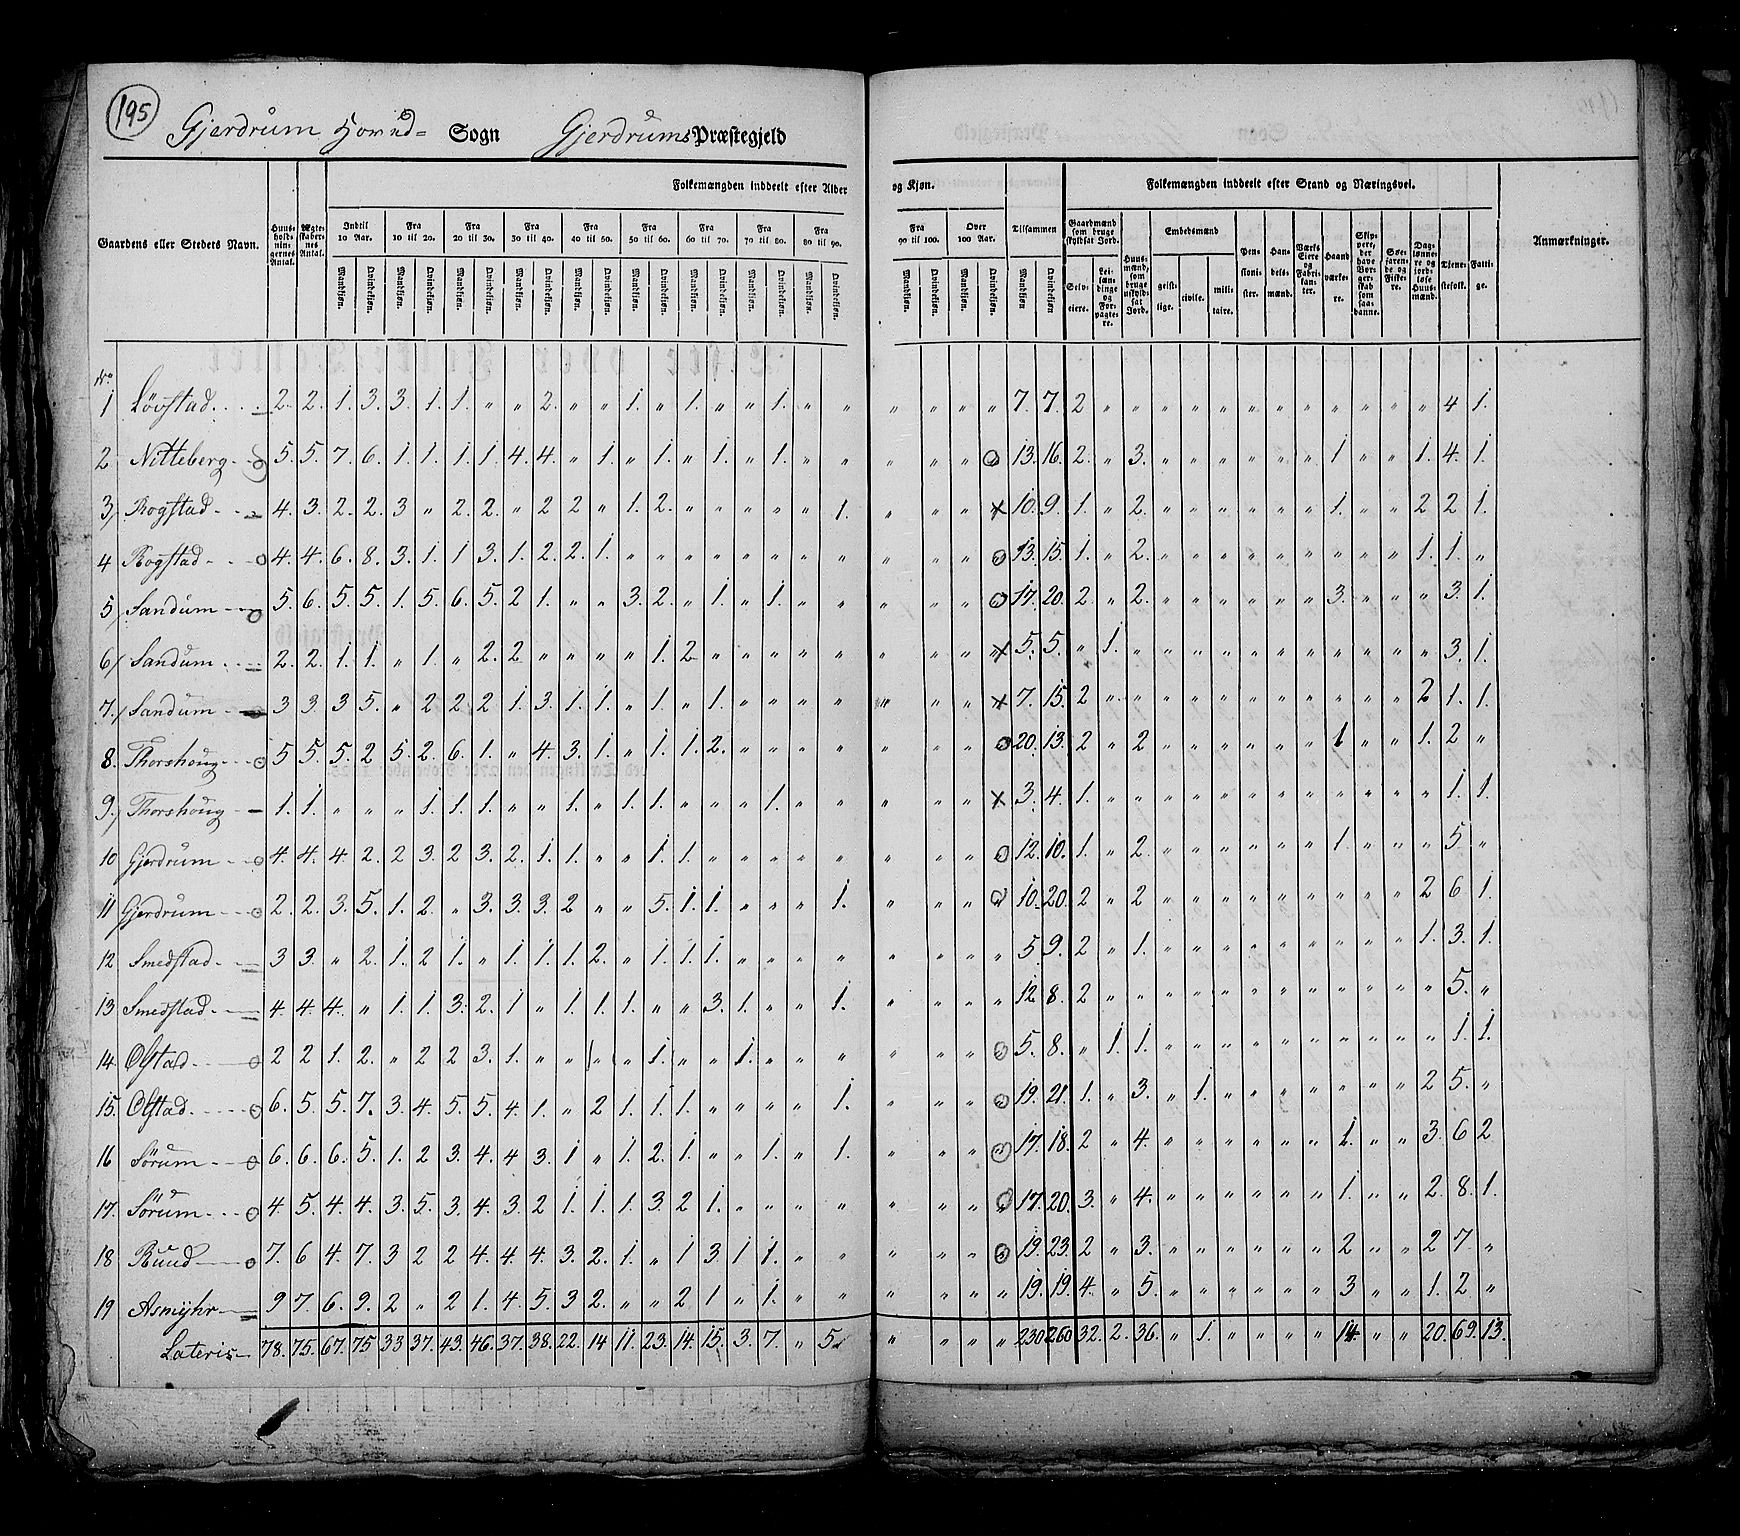 195
Gjerdrum Hoved= Sogn Gjerdrums Præstegjeld
Gaardens eller Stedets Navn. Huusholdningernes Antal. Ægteskabernes Antal. Folkemængden inddeelt efter Alder og Kjøn. Tilsammen Folkemængden inddeelt efter Stand og Næringsvei. Anmærkninger.
Indtil 10 Aar. Fra 10 til 20. Fra 20 til 30. Fra 30 til 40. Fra 40 til 50. Fra 50 til 60. Fra 60 til 70. Fra 70 til 80. Fra 80 til 90. Fra 90 til 100. Over 100 Aar. Gaardmænd som bruge skyldsat Jord. Huusmænd, som bruge uskyldsat Jord. Embedsmænd Pensionister. Handelsmænd. Værks Eiere og Fabrikanter. Haandværkere. Skippere, der have Borgerskab som saadanne. Søefarende og Fiskere. Daglønnere og jordløse Huusmænd. Tjenestefolk. Fattige.
Mandkjøn. Qvindekjøn. Mandkjøn. Qvindekjøn. Mandkjøn. Qvindekjøn. Mandkjøn. Qvindekjøn. Mandkjøn. Qvindekjøn. Mandkjøn. Qvindekjøn. Mandkjøn. Qvindekjøn. Mandkjøn. Qvindekjøn. Mandkjøn. Qvindekjøn. Mandkjøn. Qvindekjøn. Mandkjøn. Qvindekjøn. Mandkjøn Qvindekjøn. Selveiere. Leilændinge og Forpagtere. geistlige. civile. militaire.
No
1 Lövstad 2. 2. 1. 3. 3. 1. 1. " " 2. " " 1. " 1. " " 1. " " " " " " 7. 7. 2 " " " " " " " " " " " " 4 1.
2 Nitteberg 5. 5. 7. 6. 1. 1. 1. 1. 4. 4. " 1. " 1. " 1. " 1. " " " " " " 13. 16. 2. " 3. " " " " " " 1 " " 1. 4. 1
3 Rogstad 4. 3. 2. 2. 3 " 2. 2. " 2 2 " 1. 2. " " " " " 1. " " " × 10. 9. 1. " 2. " " " " " " 1. " " 2 2 1
4 Rogstad 4. 4. 6. 8. 3. 1. 1 3. 1. 2. 2. 1. " " " " " " " " " " " " 13. 15. 1. " 2. " " " " " " " " " 1. 1. "
5 Sandum 5. 6. 5. 5. 1. 5. 6. 5. 2 1. " " 3. 2. " 1. " 1. " " " " " " 17. 20. 2. " 2. " " " " " " 3. " " " 3. 1.
6 Sandum 2. 2. 1. 1. " 1. " 2. 2 " " " " 1. 2 " " " " " " " " × 5. 5. " 1. " " " " " " " " " " " 3. 1.
7. Sandum 3 3. 3 5. " 2 2 2 1. 3. 1. 1. " 1. " 1. " " " " " " " × 7. 15. 2 " " " " " " " " " " " 2 1. 1.
8. Thorshoug 5 5. 5. 2 5. 2. 6. 1. " 4. 3. 1. " 1. 1. 2. " " " " " " " " 20. 13. 2 " 2 " " " " " " 1 " " 1. 2 "
9. Thorshoug 1. 1. " " " 1. 1. 1. " " 1. " 1. 1. " " " 1. " " " " " × 3. 4. 1. " " " " " " " " " " " " 1. 1.
10 Gjerdrum 4. 4. 4. 2. 2 3. 2 3. 2. 1. 1. " " 1. 1. " " " " " " " " " 12. 10. 1. " 2. " " " " " " 1. " " " 5 "
11 Gjerdrum 2. 2. 3. 5. 1. 2. " 3. 3. 3. 2 " " 5. 1. 1. " " " 1. " " " " 10. 20. 2 " 2 " " " " " " " " " 2 6 1.
12 Smedstad 3 3. " 2. 1. 2 1. " 1. 1. 1. 2. " 1. 1. 1. " " " " " " " " 5. 9. 2 " 1. " " " " " " " " " 1. 3. 1.
13 Smedstad 4. 4. 4. " 1. 1. 3. 2. 1 " 1. 1. 1. " " 3. 1. " " 1. " " " " 12 8. 2 " " " " " " " " " " " " 5. "
14. Olstad 2 2 1. 2. " 2 2 3. 1. " " " " 1. " " 1. " " " " " " " 5. 8. " 1 1. " " " " " " " " " " 1. 1.
15. Olstad 6. 5. 5. 7. 3. 4. 5. 5. 4 1. " 2 1. 1. 1. " " " " 1. " " " " 19. 21. 1. " 3. " 1. " " " " " " " 2 5. "
16 Sörum 6. 6. 6. 5. 1. 2 3. 4. 4 3. 1 " 1. 2. 1. " " 1. " 1. " " " " 17. 18. 2 " 4. " " " " " " 1. " " 3. 6 2
17. Sörum 4 5. 4. 4. 3. 5. 3. 4. 3. 2 1. 1. 1. 3. 2 1. " " " " " " " " 17. 20. 3. " 4. " " " " " " 1. " " 2. 8. 1.
18 Ruud 7. 6 4. 7. 3 2 2 4. 4. 4. 3. 2. 1. " 1 3. 1 1. " " " " " " 19. 23. 2 " 3. " " " " " " 2 " " 2 7. "
19 Asmyhr 9 7. 6. 9. 2 " 2 1. 4. 5. 3 2. " " 2 1 " 1. " " " " " " 19. 19. 4. " 5. " " " " " " 3 " " 1. 2. "
Lateris 78. 75. 67. 75 33 37. 43. 46. 37. 38. 22. 14 11. 23. 14. 15. 3. 7. " 5 " " " " 230 260 32. 2. 36. " 1. " " " " 14 " " 20. 69. 13.